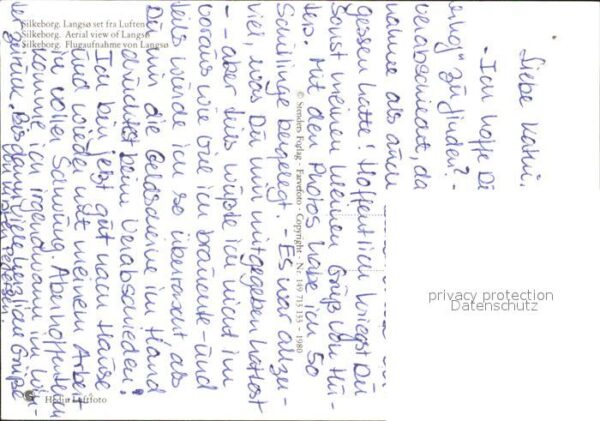 Silkeborg. Langsø set fra Luften
Silkeborg. Aerial view of Langsø
Silkeborg. Flugaufnahme von Langsø
© Stenders Forlag - Farvefoto - Copyright - Nr. 149 713 133 - 1980
Hedju Luftfoto
Liebe Kahn.
- Ich hoffe Di
zu finden? -
verabschiedet, da
nahme als
gessen hatte! Hoffentlich kriegst Du
sonst meinen kleinen Gruß von
Mit den Photos habe ich 50
Schillinge beigelegt. - Es war allzu-
viel, was Du mir mitgegeben hattest
-- aber teils wüßte ich nicht im
voraus wie viel ich brauchte - und
teils würde ich so überrascht als
Du mir die Geldscheine im Hand
drücktest beim Verabschieden!
Ich bin jetzt gut nach Hause
und wieder mit meinem Arbeit
in voller Schwung. Aber hoffentlich
komme ich irgendwann im
zurück. Bis dann viele herzlichen Grüße
von Kirsten Pedersen.
privacy protection
Datenschutz